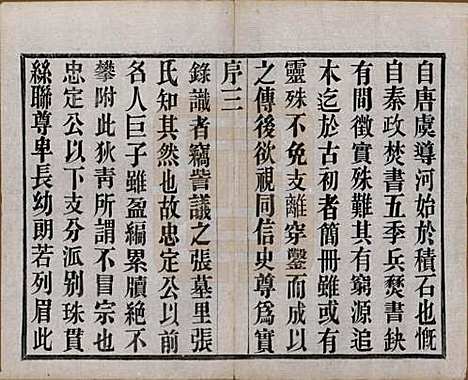 自唐虞導河始於積石也慨
自秦政焚書五季兵焚書缺
有間徵實殊難其有窮源追
木迄於古初者簡冊雖或有
靈殊不免支離穿鑿而成以
之傳後欲視同信史尊為實
序三
錄識者竊訾議之張墓里張
氏知其然也故忠定公以前
名人巨子雖盈編累牘絶不
攀附此狄青所謂不可及也
忠定公以下支分派別珠貫
絲聯尊卑長幼朗若列眉此